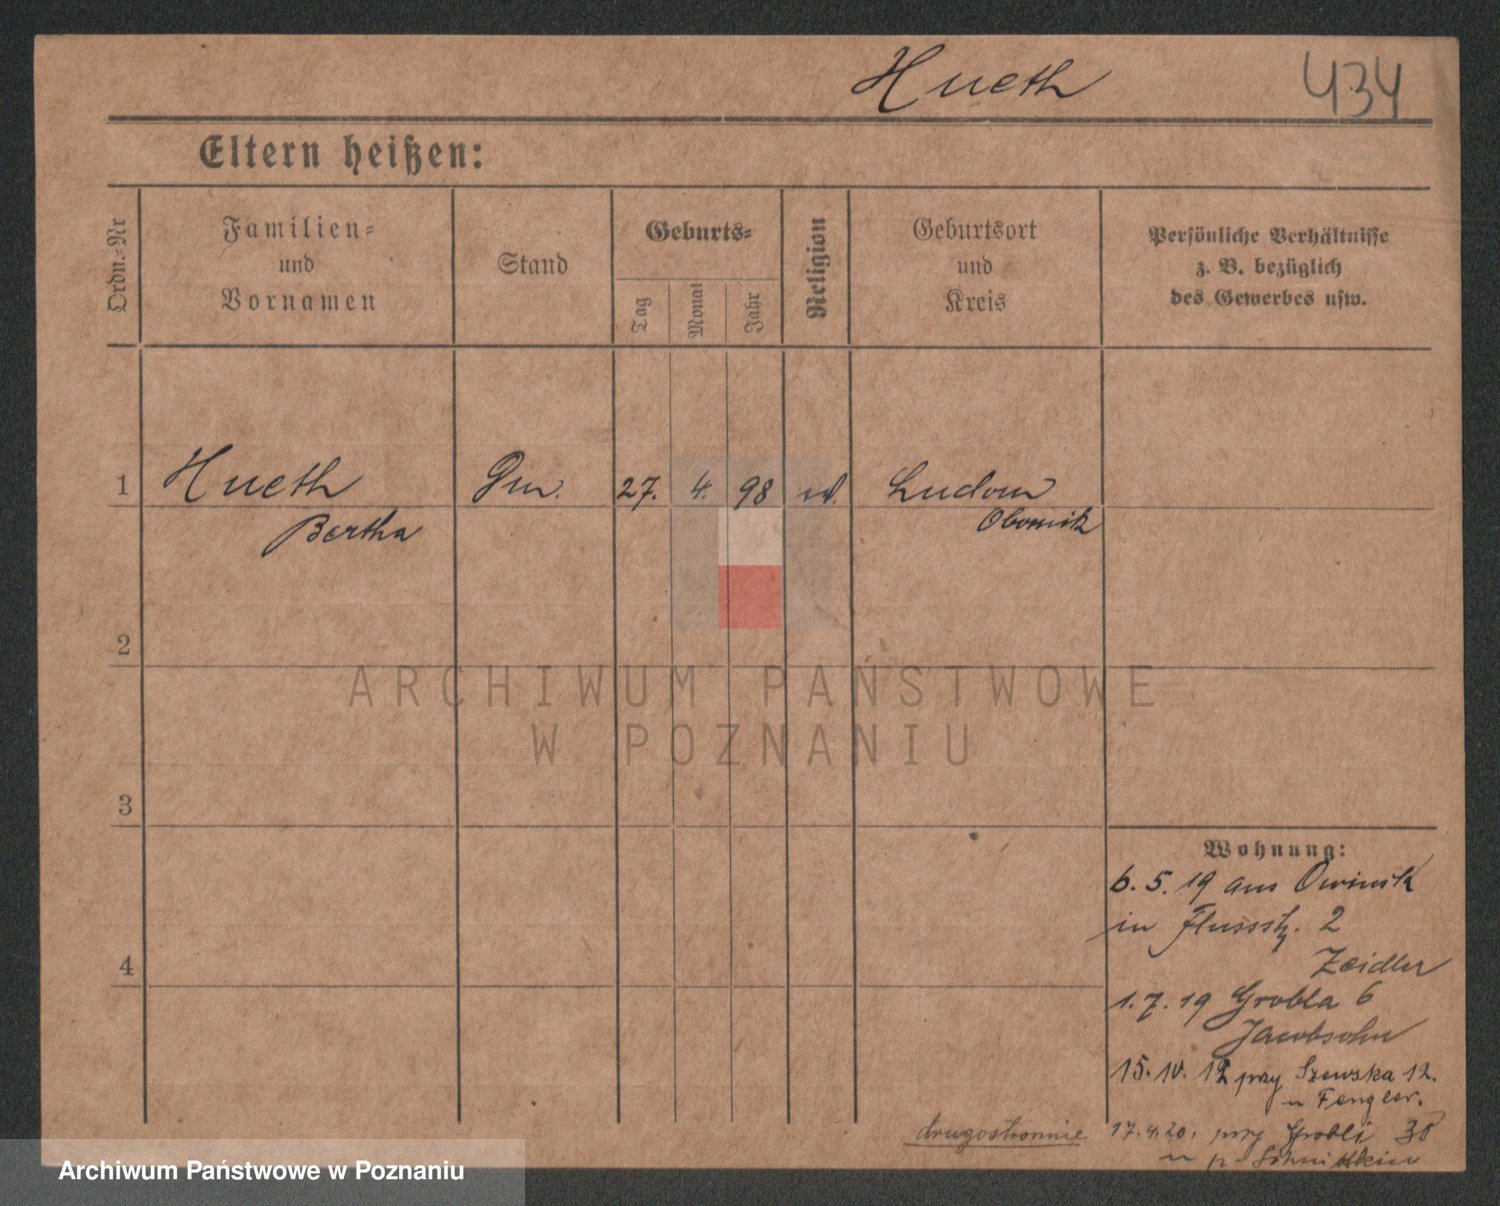 Hueth 434
Eltern heißen:
Ordn.-Nr
Familien-
und
Vornamen
Stand
Geburts-
Tag
Monat
Jahr
Religion
Geburtsort
und
Kreis
Persönliche Verhältnisse
z. B. bezüglich
des Gewerbes usw.
1 Hueth 27. 4. 98 Ludom
Bertha Obornik
2
3
4
Wohnung:
6. 5. 19 aus Owinsk
in Flussstr. 2
Zeidler
1. 7. 19 Grobla 6
Jacobsohn
15. 10. 19 przy Szewska 12.
u Fengler.
drugostronnie 17.4.20. przy Grobli 30
u p.
ARCHIWUM PAŃSTWOWE
W POZNANIU
Archiwum Państwowe w Poznaniu